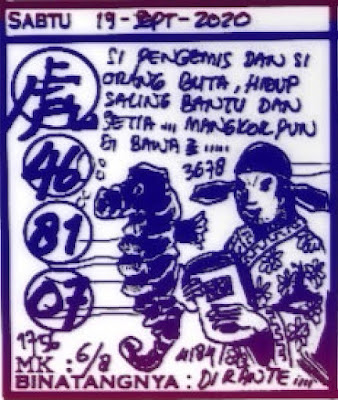 SABTU 19 - SEPT - 2020
SI PENGEMIS DAN SI
ORANG BUTA, HIDUP
SALING BANTU DAN
SETIA .... MANGKOR PUN
DI BAWA 2 .....
3678
虎
46
81
07
1756
MK : 6/8
BINATANGNYA : DI RANTE .....